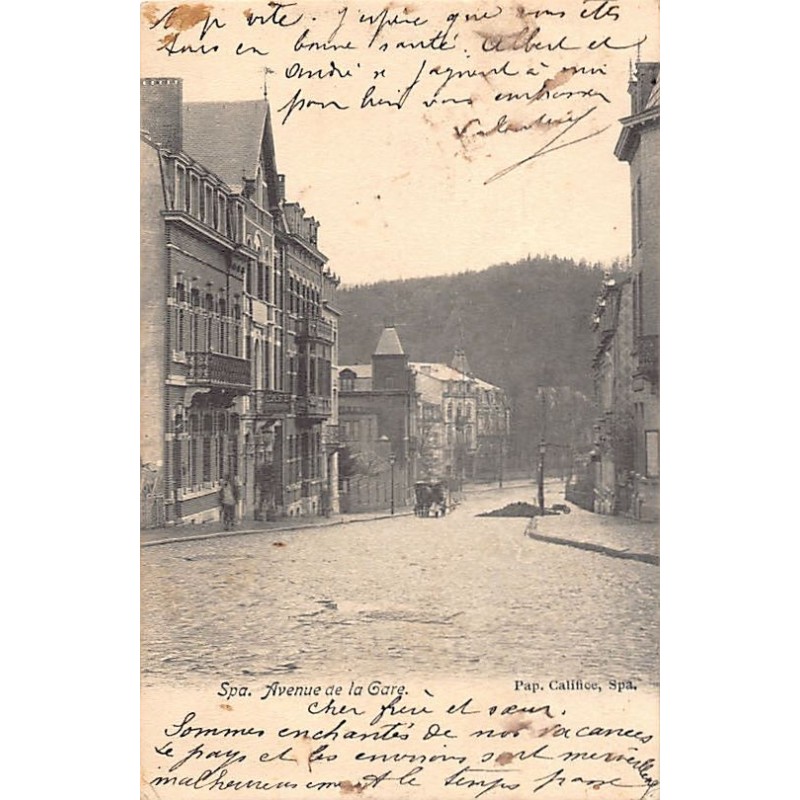 trop vite. J'espère que vous êtes
tous en bonne santé. Albert et
André se joignent à moi
pour bien vous embrasser
Spa. Avenue de la Gare.
Pap. Califice, Spa.
Cher frère et sœur.
Sommes enchantés de nos vacances
Le pays et les environs sont merveilleux
malheureusement le temps passe